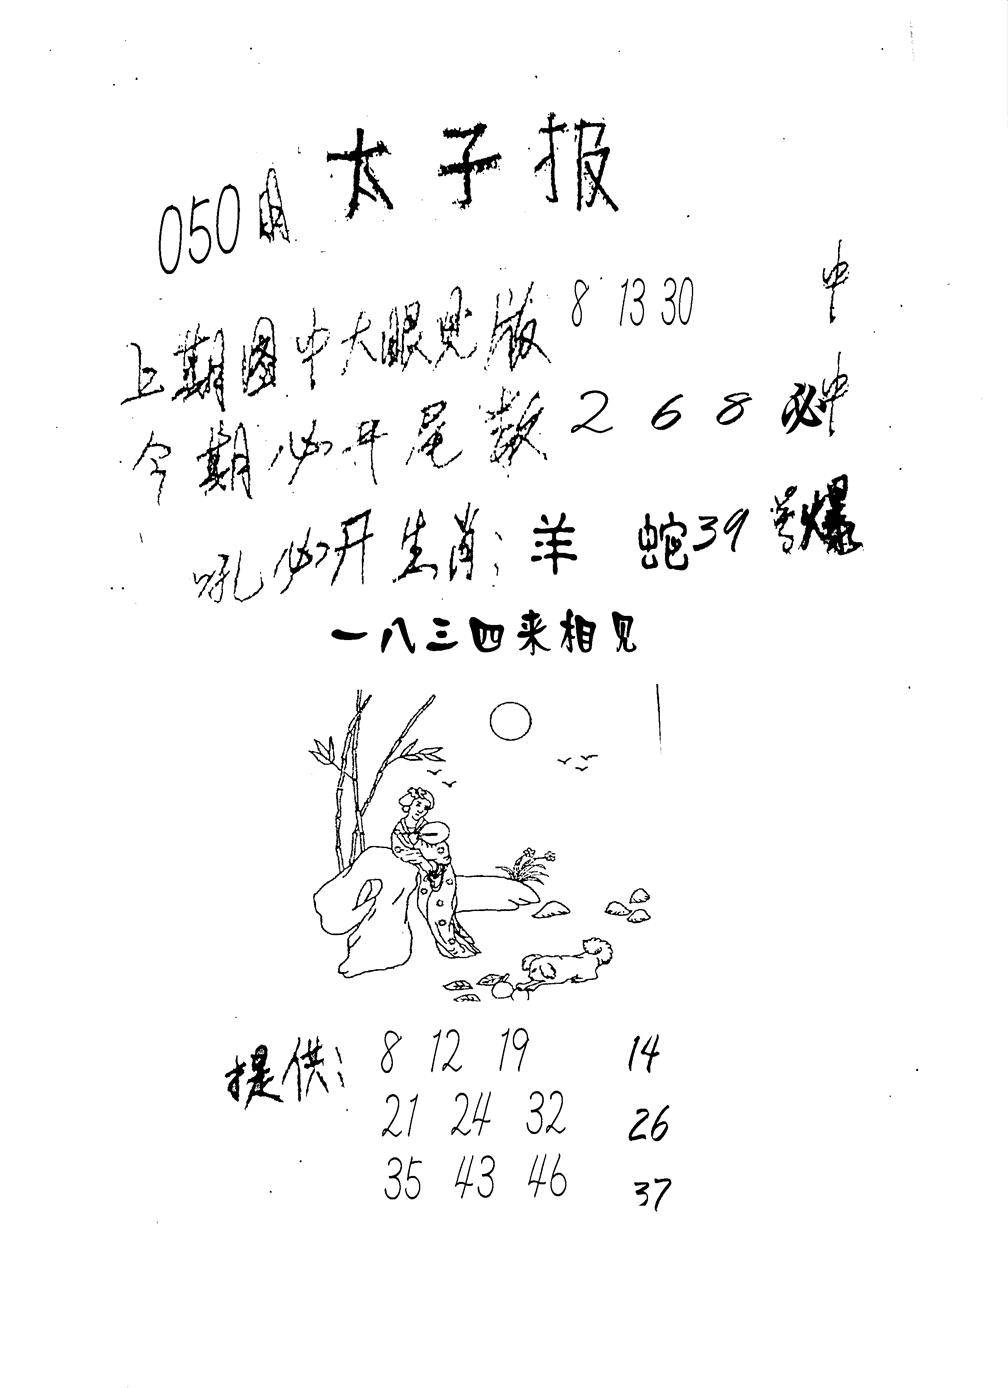 太子报
050期
上期图中大眼见版 8 13 30 中
今期必开尾数 2 6 8 必中
吼必开生肖: 羊 蛇 39号爆
一八三四来相见
提供: 8 12 19 14
21 24 32 26
35 43 46 37